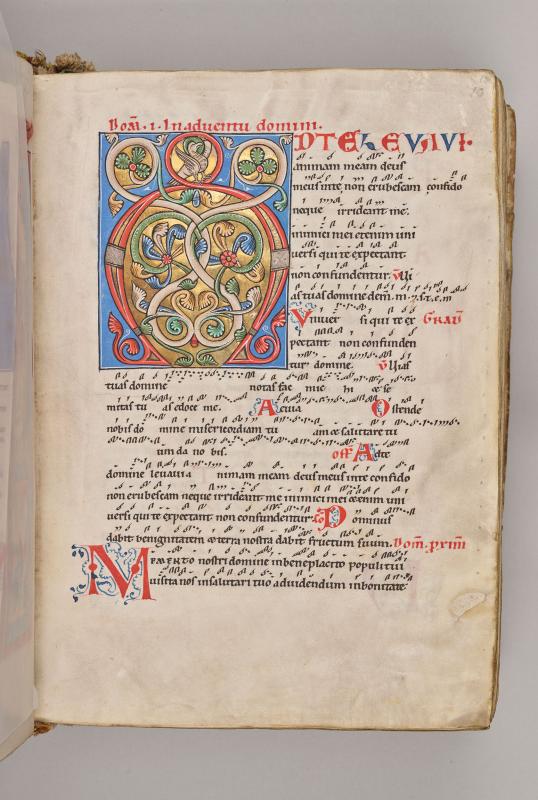 Dom̄ · i · In adventu domini.
AD TE LEVAVI·
animam meam deus
meus in te non erubescam confido
neque irrideant me.
inimici mei etenim uni
versi qui te expectant
non confundentur. Vi
as tuas domine
Vniver si qui te ex Grad̄
pectant non confunden
tur domine. Vias
tuas domine notas fac mi hi et se
mitas tu as edoce me. Aevia Ostende
nobis do mine misericordiam tu am et salutare tu
um da no bis. off Ad te
domine levavi a nimam meam deus meus in te confido
non erubescam neque irrideant me inimici mei etenim uni
versi qui te expectant non confundentur. co Dominus
dabit benignitatem et terra nostra dabit fructum suum. Dom̄
MEMENTO nostri domine in beneplacito populi tui
visita nos in salutari tuo ad videndum in bonitate